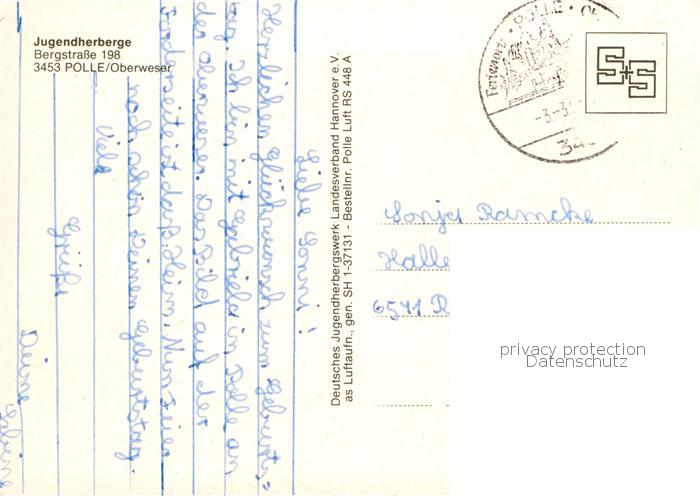 Jugendherberge
Bergstraße 198
3453 POLLE/Oberweser
Liebe
Herzlichen Glückwunsch zum Geburts-
tag. Ich bin mit Gabriela in Polle an
der Oberweser. Das Bild auf der
Forderseite ist das Heim. Nun feier
noch schön Deinen Geburtstag.
Viele
Grüße
Deine
Deutsches Jugendherbergswerk Landesverband Hannover e.V.
as Luftaufn., gen. SH 1-37131 - Bestellnr. Polle Luft RS 448 A
Ferienort · POLLE ·
-3.-3
34
S+S
Sonja Ramcke
Halle
6571 R
privacy protection
Datenschutz